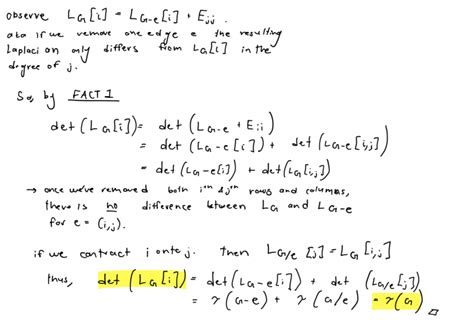 observe L_G[i] = L_{G-e}[i] + E_{jj}.
aka if we remove one edge e the resulting
Laplacian only differs from L_G[i] in the
degree of j.
So, by FACT 1
det(L_G[i]) = det(L_{G-e} + E_{ii})
= det(L_{G-e}[i]) + det(L_{G-e}[i,j])
= det(L_{G-e}[i]) + det(L_G[i,j])
→ once we've removed both i^{th} & j^{th} rows and columns,
there is no difference between L_G and L_{G-e}
for e = (i,j).
if we contract i onto j. then L_{G/e}[j] = L_G[i,j]
thus, det(L_G[i]) = det(L_{G-e}[i]) + det(L_{G/e}[j])
= τ(G-e) + τ(G/e) = τ(G) □